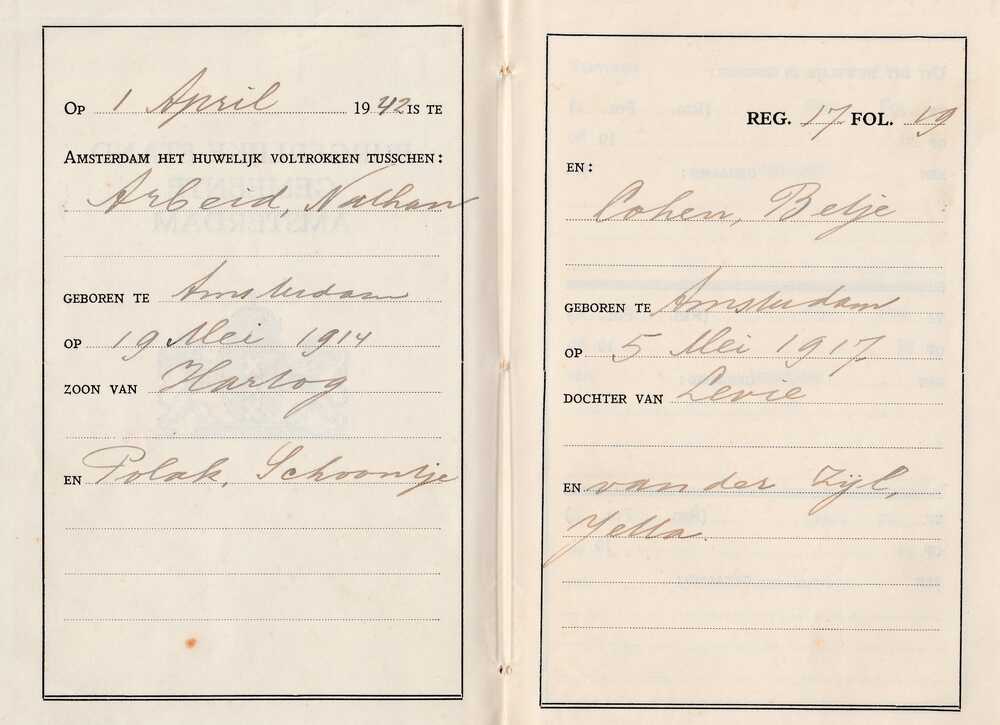 Op 1 April 1942 is te
Amsterdam het huwelijk voltrokken tusschen:
Arbeid, Nathan
geboren te Amsterdam
op 19 Mei 1914
zoon van Hartog
en Polak, Schoontje
REG. 17 FOL. 19
en:
Cohen, Betje
geboren te Amsterdam
op 5 Mei 1917
dochter van Levie
en van der Zijl,
Jetta.